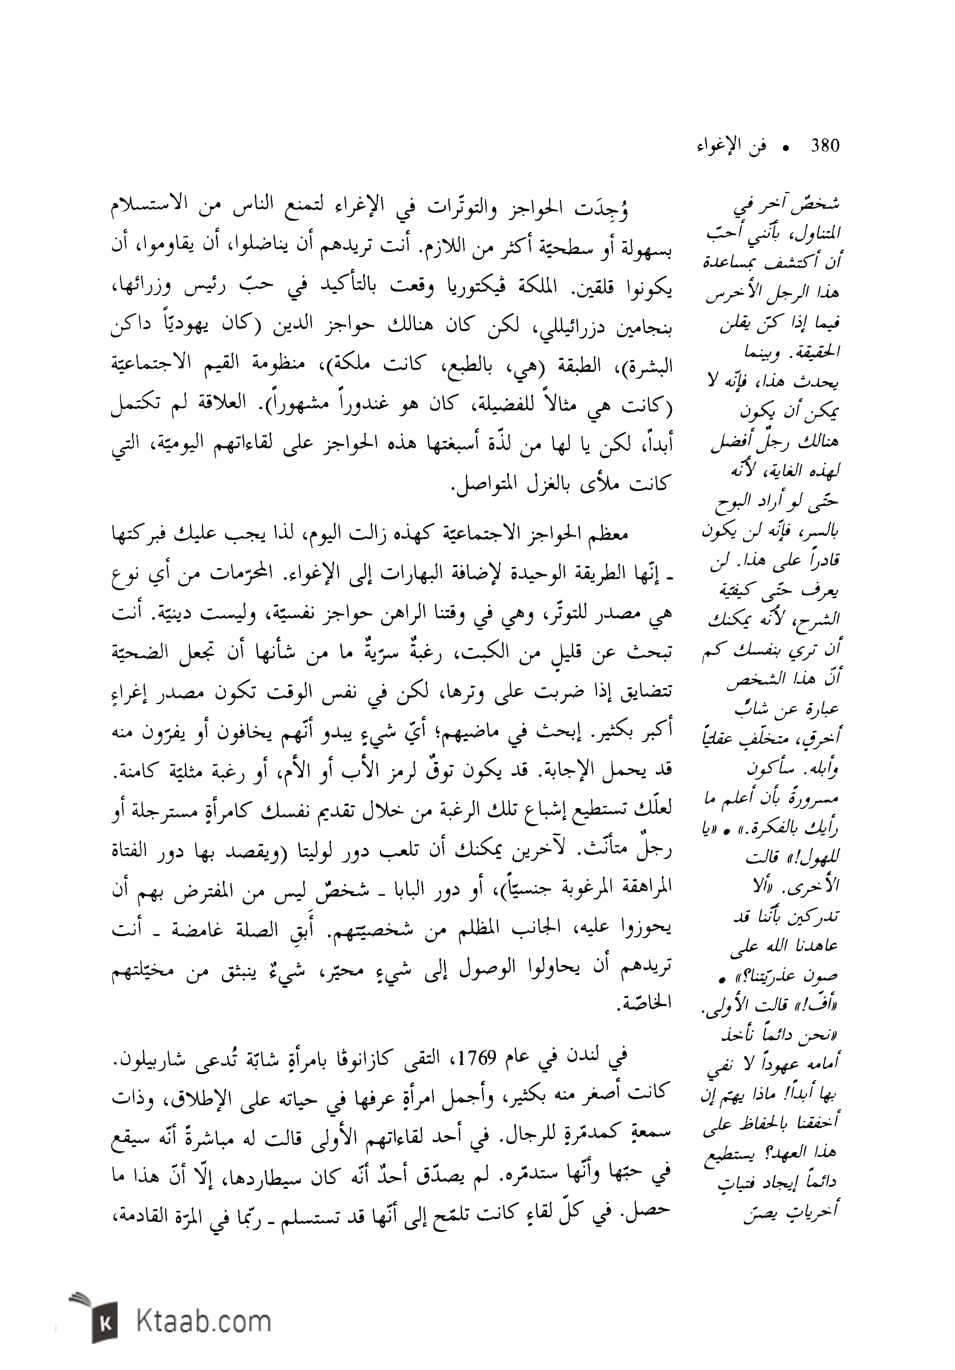 380 • فن الإغواء
شخصٌ آخر في
المتناول، بأنّني أحبّ
أن أكتشف بمساعدة
هذا الرجل الأخرس
فيما إذا كنّ يقلن
الحقيقة. وبينما
يحدث هذا، فإنّه لا
يمكن أن يكون
هنالك رجلٌ أفضل
لهذه الغاية، لأنّه
حتّى لو أراد البوح
بالسر، فإنّه لن يكون
قادراً على هذا. لن
يعرف حتّى كيفيّة
الشرح، لأنّه يمكنك
أن تري بنفسك كم
أنّ هذا الشخص
عبارة عن شابٍّ
أخرقٍ، متخلّفٍ عقليّاً
وأبله. سأكون
مسرورةً بأن أعلم ما
رأيك بالفكرة.» • «يا
للهول!» قالت
الأخرى. «ألا
تدركين بأنّنا قد
عاهدنا الله على
صون عذريّتنا؟» •
«أفّ!» قالت الأولى.
«نحن دائماً نأخذ
أمامه عهوداً لا نفي
بها أبداً! ماذا يهتم إن
أخفقنا بالحفاظ على
هذا العهد؟ يستطيع
دائماً إيجاد فتياتٍ
أخرياتٍ يصنّ
وُجِدَت الحواجز والتوتّرات في الإغراء لتمنع الناس من الاستسلام
بسهولة أو سطحيّة أكثر من اللازم. أنت تريدهم أن يناضلوا، أن يقاوموا، أن
يكونوا قلقين. الملكة ڤيكتوريا وقعت بالتأكيد في حبّ رئيس وزرائها،
بنجامين دزرائيللي، لكن كان هنالك حواجز الدين (كان يهوديّاً داكن
البشرة)، الطبقة (هي، بالطبع، كانت ملكة)، منظومة القيم الاجتماعيّة
(كانت هي مثالاً للفضيلة، كان هو غندوراً مشهوراً). العلاقة لم تكتمل
أبداً، لكن يا لها من لذّة أسبغتها هذه الحواجز على لقاءاتهم اليوميّة، التي
كانت ملأى بالغزل المتواصل.
معظم الحواجز الاجتماعيّة كهذه زالت اليوم، لذا يجب عليك فبركتها
ـ إنّها الطريقة الوحيدة لإضافة البهارات إلى الإغواء. المحرّمات من أي نوع
هي مصدر للتوتّر، وهي في وقتنا الراهن حواجز نفسيّة، وليست دينيّة. أنت
تبحث عن قليلٍ من الكبت، رغبةٌ سرّيةٌ ما من شأنها أن تجعل الضحيّة
تتضايق إذا ضربت على وترها، لكن في نفس الوقت تكون مصدر إغراءٍ
أكبر بكثير. إبحث في ماضيهم؛ أيّ شيءٍ يبدو أنّهم يخافون أو يفرّون منه
قد يحمل الإجابة. قد يكون توقٌ لرمز الأب أو الأم، أو رغبة مثليّة كامنة.
لعلّك تستطيع إشباع تلك الرغبة من خلال تقديم نفسك كامرأةٍ مسترجلة أو
رجلٌ متأنّث. لآخرين يمكنك أن تلعب دور لوليتا (ويقصد بها دور الفتاة
المراهقة المرغوبة جنسيّاً)، أو دور البابا ـ شخصٌ ليس من المفترض بهم أن
يحوزوا عليه، الجانب المظلم من شخصيّتهم. أَبقِ الصلة غامضة ـ أنت
تريدهم أن يحاولوا الوصول إلى شيءٍ محيّر، شيءٌ ينبثق من مخيّلتهم
الخاصّة.
في لندن في عام 1769، التقى كازانوڤا بامرأةٍ شابّة تُدعى شاربيلون.
كانت أصغر منه بكثير، وأجمل امرأةٍ عرفها في حياته على الإطلاق، وذات
سمعةٍ كمدمّرةٍ للرجال. في أحد لقاءاتهم الأولى قالت له مباشرةً أنّه سيقع
في حبّها وأنّها ستدمّره. لم يصدّق أحدٌ أنّه كان سيطاردها، إلّا أنّ هذا ما
حصل. في كلّ لقاءٍ كانت تلمّح إلى أنّها قد تستسلم ـ ربّما في المرّة القادمة،
Ktaab.com